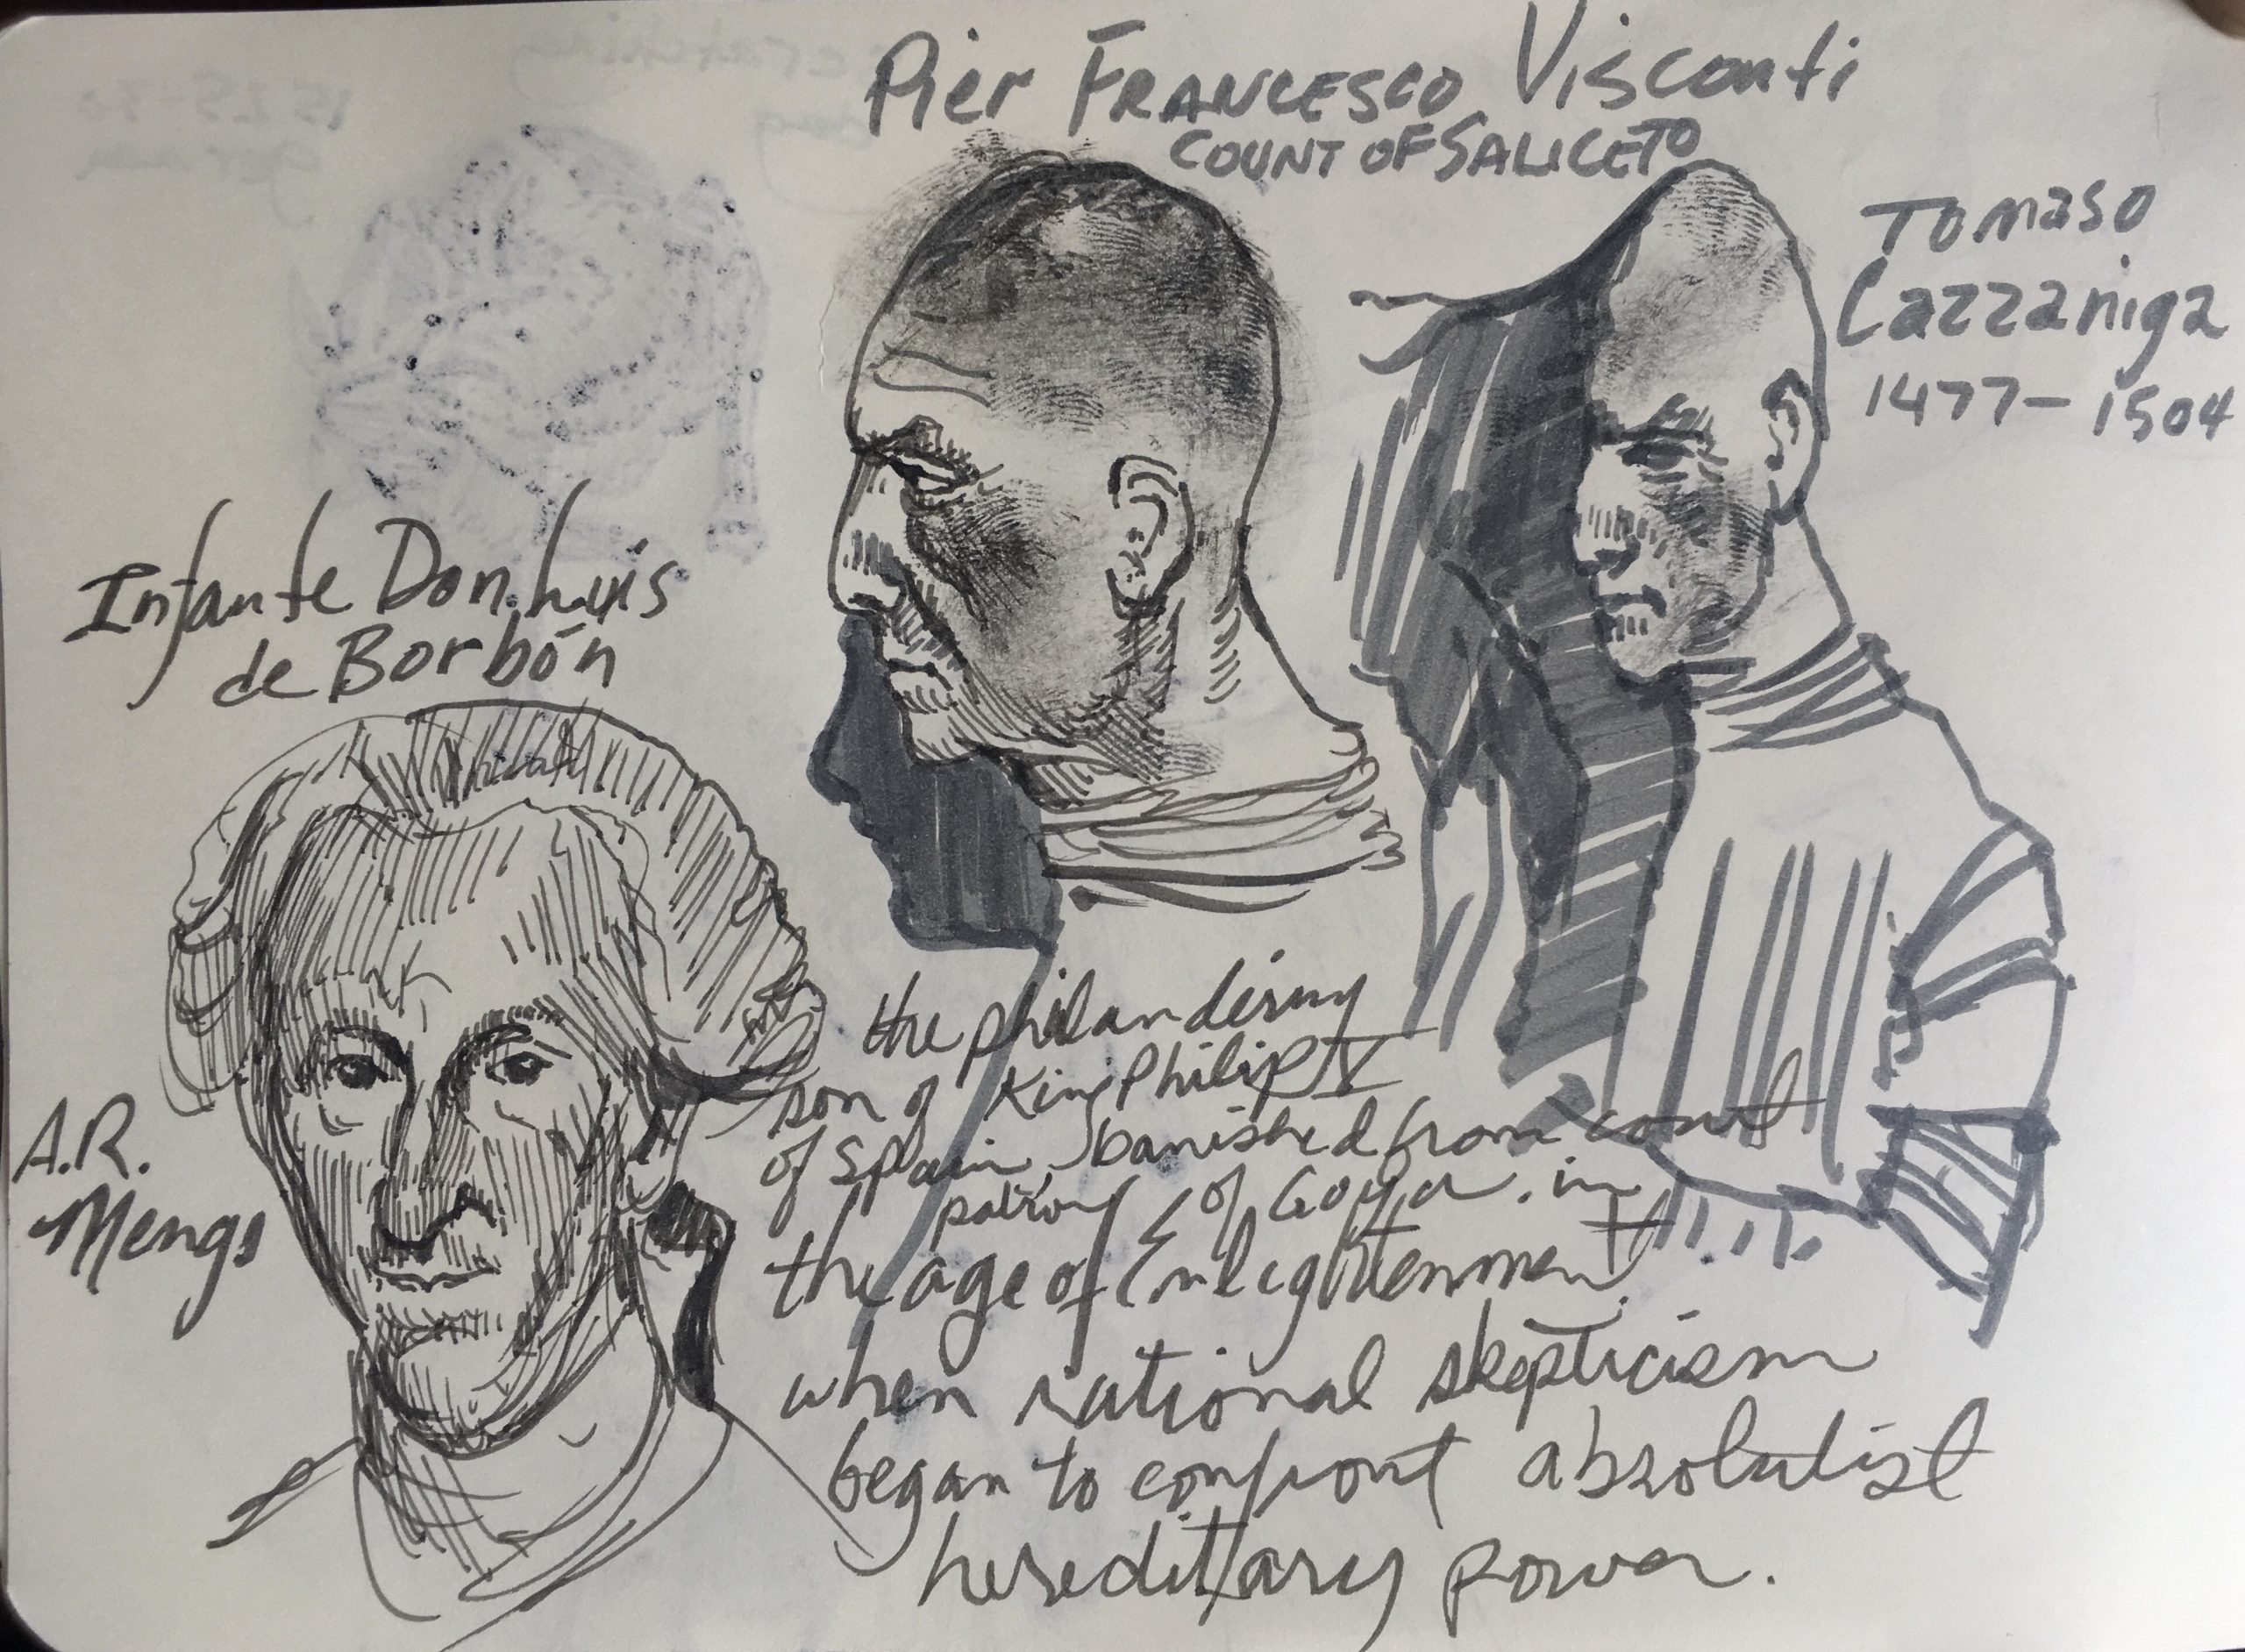 Pier FRANCESCO Visconti
COUNT OF SALICETO
Tomaso
Cazzaniga
1477-1504
Infante Don Luis
de Borbón
A.R.
Mengs
the philandering
son of King Philip V
of Spain, banished from court
patron of Goya. in
the age of Enlightenment
when rational skepticism
began to confront absolutist
hereditary power.